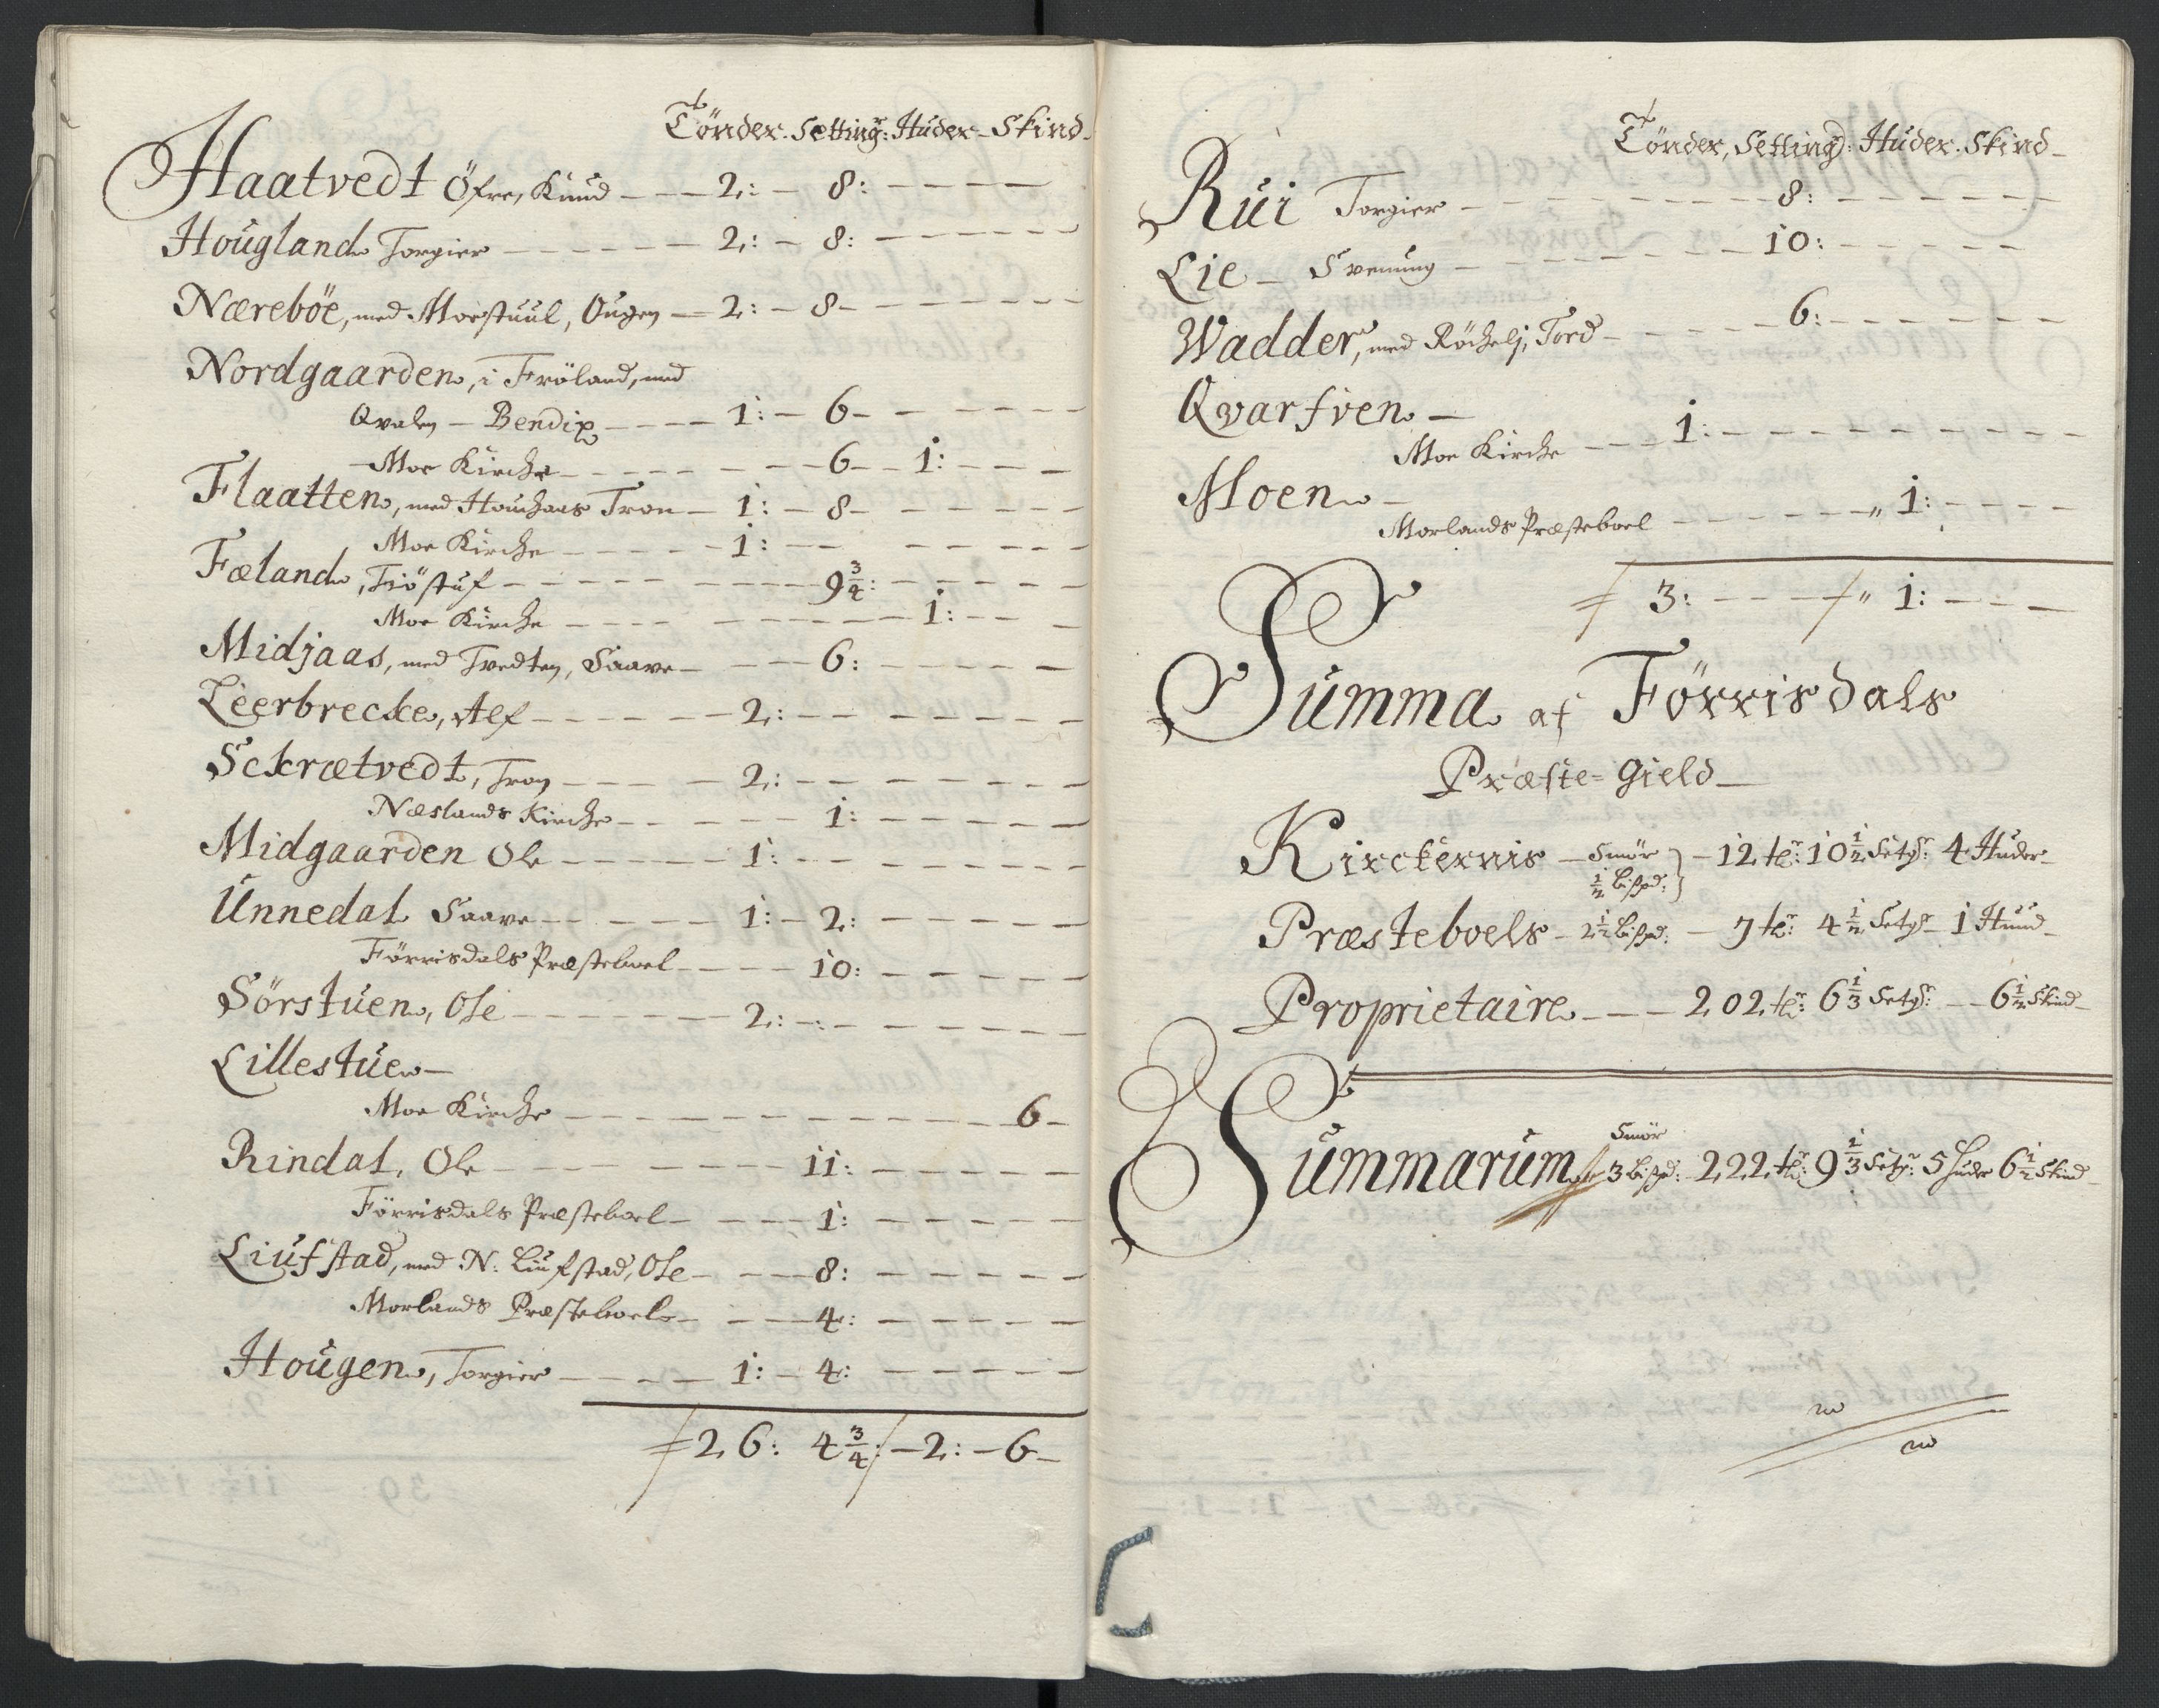 Tönder. Setting: Huder - Skind -
Haatvedt Öfre, Knud - - - 2: - 8: - - - -
Hougland Torgier - - - - - - 2: - 8: - - - - - -
Næreböe, med Moestuul, Ougen - 2: - 8 - - - - - - -
Nordgaarden, i Fröland, med
Qvalen - Bendix - - - - 1: - 6 - - - - - -
Moe Kirche - - - - - - - 6 - - 1: - - -
Flaatten, med Houchaas Tron - 1: - 8 - - - - - - -
Moe Kirche - - - - - 1: - - - - - - -
Fæland, Tiöstuf - - - - - - - - - 9 3/4: - - - - -
Moe Kirche - - - - - - - - - 1: - - -
Midjaas, med Tvedten, Saave - - - - 6: - - - - -
Leerbrecke, Alf - - - - - - 2: - - - - - - -
Sckrætvedt, Tron - - - - 2: - - - - - - -
Næslands Kirche - - - - - - 1: - - - - -
Midgaarden Ole - - - - - 1: - - - - - - -
Unnedal Saave - - - - - - 1: - 2: - - - - -
Förrisdals Præsteboel - - - - 10: - - - - -
Sörstuen, Ole - - - - - - - 2: - - - - - - -
Lillestue -
Moe Kirche - - - - - - - - - - - - 6 -
Rindal, Ole - - - - - - - - 11: - - - - -
Förrisdals Præsteboel - - - - 1: - - - - -
Liufstad, med N: Liufstad, Ole - - - - 8: - - - - -
Morlands Præsteboel - - - - 4: - - - - -
Hougen, Torgier - - - - - 1: - 4: - - - - -
26: 4 3/4: - 2: - 6 -
Tönder, Setting: Huder. Skind -
Rui Torgier - - - - - - - - - 8: - - - - - -
Lie - Svenung - - - - - - - - 10: - - - - -
Wadder, med Röchelj, Tord - - - - - 6: - - - - - -
Qvarfven -
Moe Kirche - - - 1: - - - - - - - - -
Moen -
Morlands Præsteboel - - - - - - " 1: - - - -
3: - - - - " 1: - - -
Summa af Förrisdals
Præste-Gield -
Kirckernis - Smör 1/2 Bißpd: } - 12 tr: 10 1/2 Setgr: 4 Huder -
Præsteboels - 2 1/2 Bißpd: - 7 tr: 4 1/2 Setgr - 1 Huud -
Proprietaire - - - 202 tr: 6 1/3 Setgr: - - 6 1/2 Skind -
Smör
Summarum 3 Bißpd: 222 tr: 9 1/3 Setgr: 5 Huder 6 1/2 Skind -